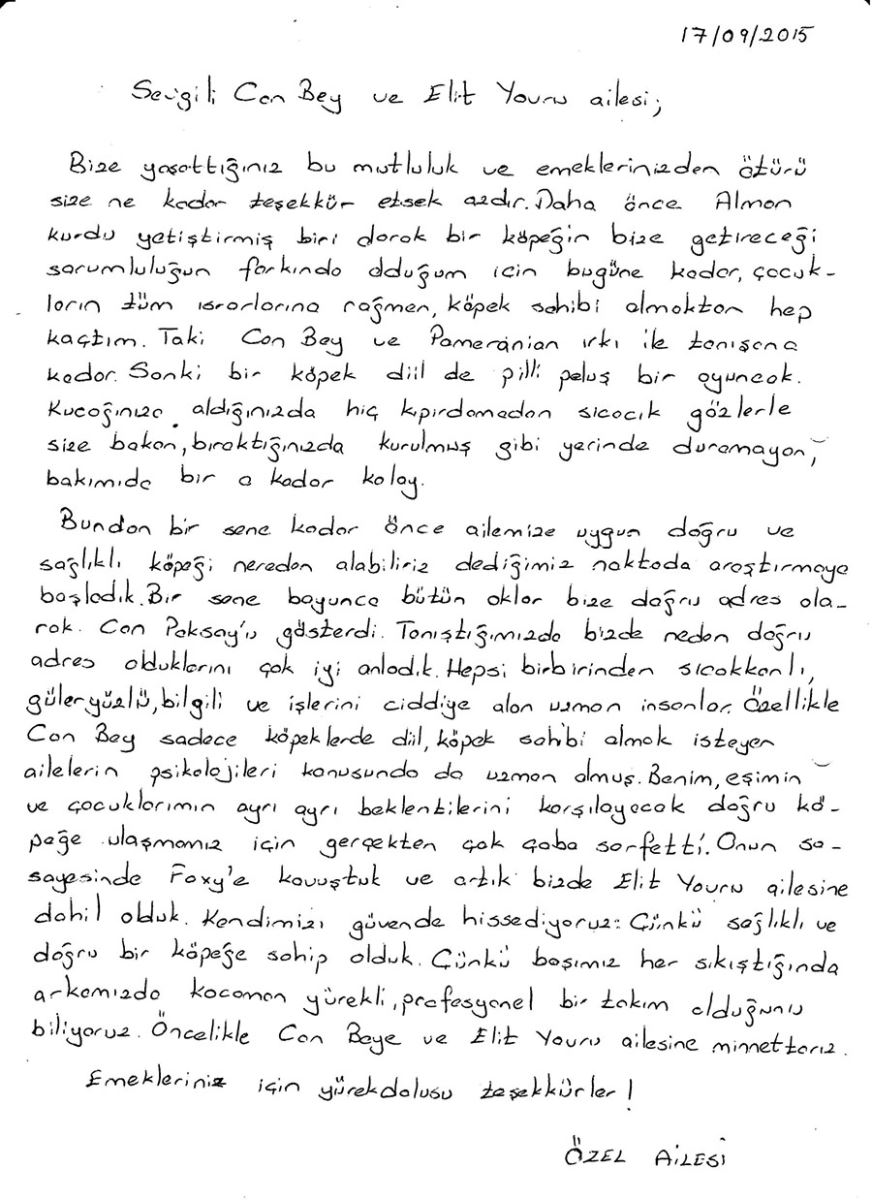 17/09/2015
Sevgili Can Bey ve Elit Yavru ailesi;
Bize yaşattığınız bu mutluluk ve emeklerinizden ötürü
size ne kadar teşekkür etsek azdır. Daha önce Alman
kurdu yetiştirmiş biri olarak bir köpeğin bize getireceği
sorumluluğun farkında olduğum için bugüne kadar, çocuk-
ların tüm ısrarlarına rağmen, köpek sahibi olmaktan hep
kaçtım. Taki Can Bey ve Pomeranian ırkı ile tanışana
kadar. Sanki bir köpek diil de pilli peluş bir oyuncak.
Kucağınıza aldığınızda hiç kıpırdamadan sıcacık gözlerle
size bakan, bıraktığınızda kurulmuş gibi yerinde duramayan,
bakımıda bir o kadar kolay.
Bundan bir sene kadar önce ailemize uygun doğru ve
sağlıklı köpeği nereden alabiliriz dediğimiz noktada araştırmaya
başladık. Bir sene boyunca bütün oklar bize doğru adres ola-
rak. Can Paksay'ı gösterdi. Tanıştığımızda bizde neden doğru
adres olduklarını çok iyi anladık. Hepsi birbirinden sıcakkanlı,
güleryüzlü, bilgili ve işlerini ciddiye alan uzman insanlar. Özellikle
Can Bey sadece köpeklerde diil, köpek sahibi olmak isteyen
ailelerin psikolojileri konusunda da uzman olmuş. Benim, eşimin
ve çocuklarımın ayrı ayrı beklentilerini karşılayacak doğru kö-
peğe ulaşmamız için gerçekten çok çaba sarfetti. Onun sa-
sayesinde Foxy'e kavuştuk ve artık bizde Elit Yavru ailesine
dahil olduk. Kendimizi güvende hissediyoruz: Çünkü sağlıklı ve
doğru bir köpeğe sahip olduk. Çünkü başımız her sıkıştığında
arkamızda kocaman yürekli, profesyonel bir takım olduğunu
biliyoruz. Öncelikle Can Beye ve Elit Yavru ailesine minnettarız.
Emekleriniz için yürekdolusu teşekkürler!
ÖZEL AİLESİ